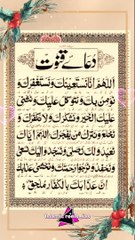 دعائے قنوت
اَللّٰهُمَّ اِنَّا نَسْتَعِيْنُكَ وَنَسْتَغْفِرُكَ وَ
نُؤْمِنُ بِكَ وَنَتَوَكَّلُ عَلَيْكَ وَنُثْنِيْ
عَلَيْكَ الْخَيْرَ وَنَشْكُرُكَ وَلَا نَكْفُرُكَ وَ
نَخْلَعُ وَنَتْرُكُ مَنْ يَّفْجُرُكَ اَللّٰهُمَّ اِيَّاكَ
نَعْبُدُ وَلَكَ نُصَلِّيْ وَنَسْجُدُ وَاِلَيْكَ نَسْعٰى
وَنَحْفِدُ وَنَرْجُوْا رَحْمَتَكَ وَنَخْشٰى عَذَابَكَ
اِنَّ عَذَابَكَ بِالْكُفَّارِ مُلْحِقٌ